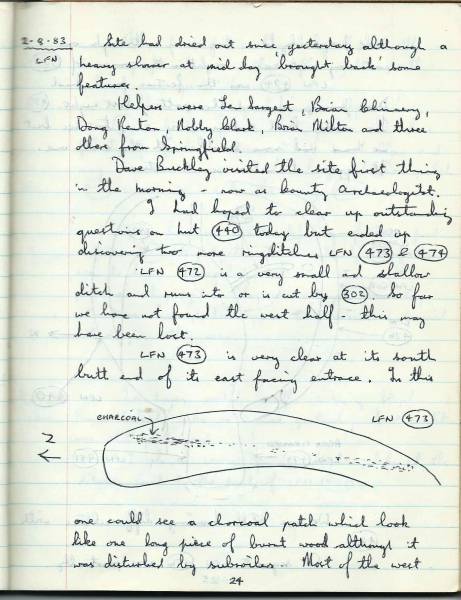 2-8-83 Site had dried out since yesterday although a
LFN heavy shower at mid day 'brought back' some
features.
Helpers were Ian Sargent, Brian Chinnery,
Doug Renton, Nobby Clark, Brian Milton and three
others from Springfield.
Dave Buckley visited the site first thing
in the morning - now as County Archaeologist.
I had hoped to clear up outstanding
questions on hut 440 today but ended up
discovering two more ringditches LFN 473 & 474
LFN 472 is a very small and shallow
ditch and runs into or is cut by 302. So far
we have not found the west half - this may
have been lost.
LFN 473 is very clear at its south
butt end of its east facing entrance. In this
CHARCOAL LFN 473
N
one could see a charcoal patch which look
like one long piece of burnt wood although it
was disturbed by subsoiler. Most of the west
24